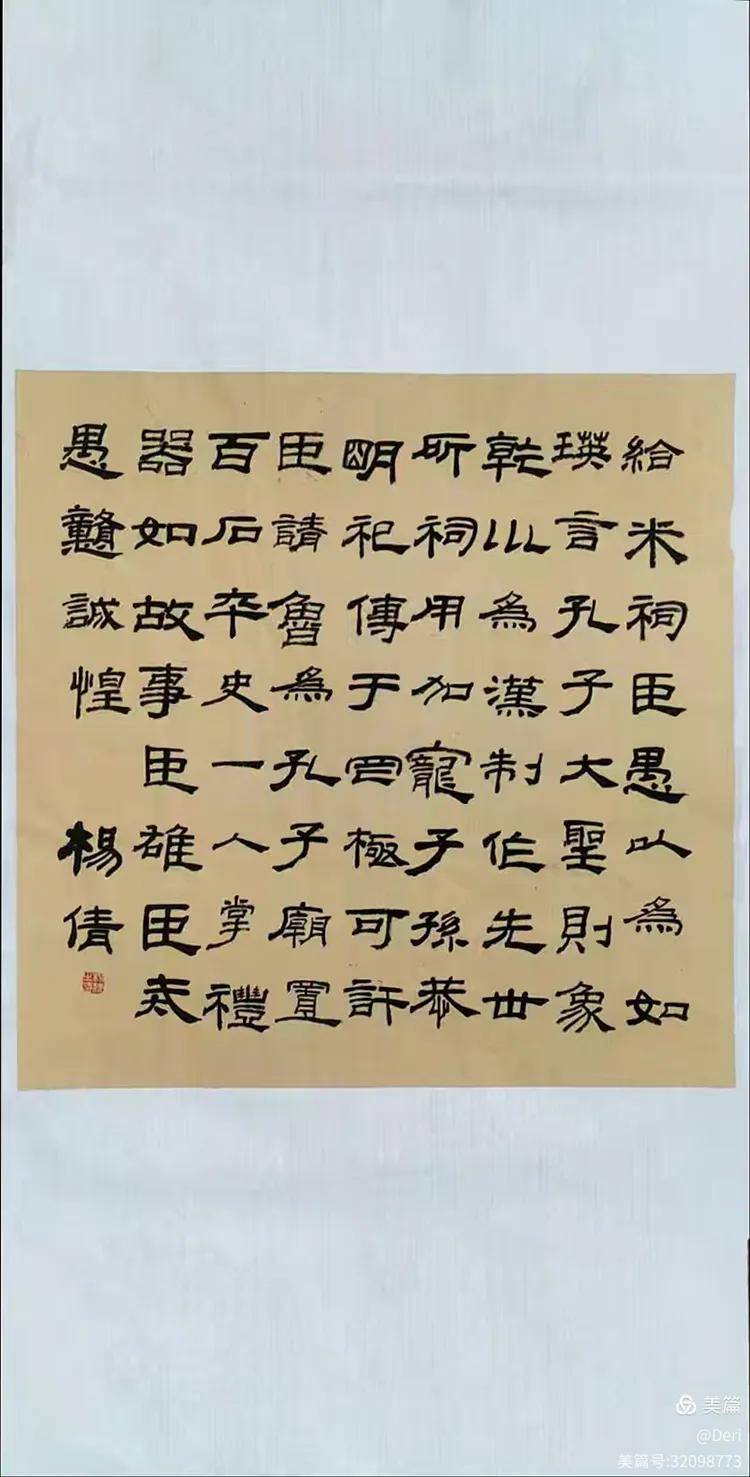 給米祠臣愚以為如
瑛言孔子大聖則象
乾巛為漢制作先世
所祠用加寵子孫恭
明祀傳于罔極可許
臣請魯為孔子廟置
百石卒史一人掌禮
器如故事臣雄臣
愚戇誠惶
楊倩
美篇
@Deri
美篇号:32098773